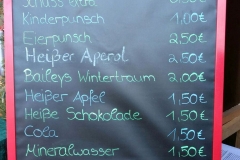 Schuss extra 0,50€
Kinderpunsch 1,00€
Eierpunsch 2,50€
Heißer Aperol 2,50€
Baileys Wintertraum 2,00€
Heißer Apfel 1,50€
Heiße Schokolade 1,50€
Cola 1,50€
Mineralwasser 1,50€